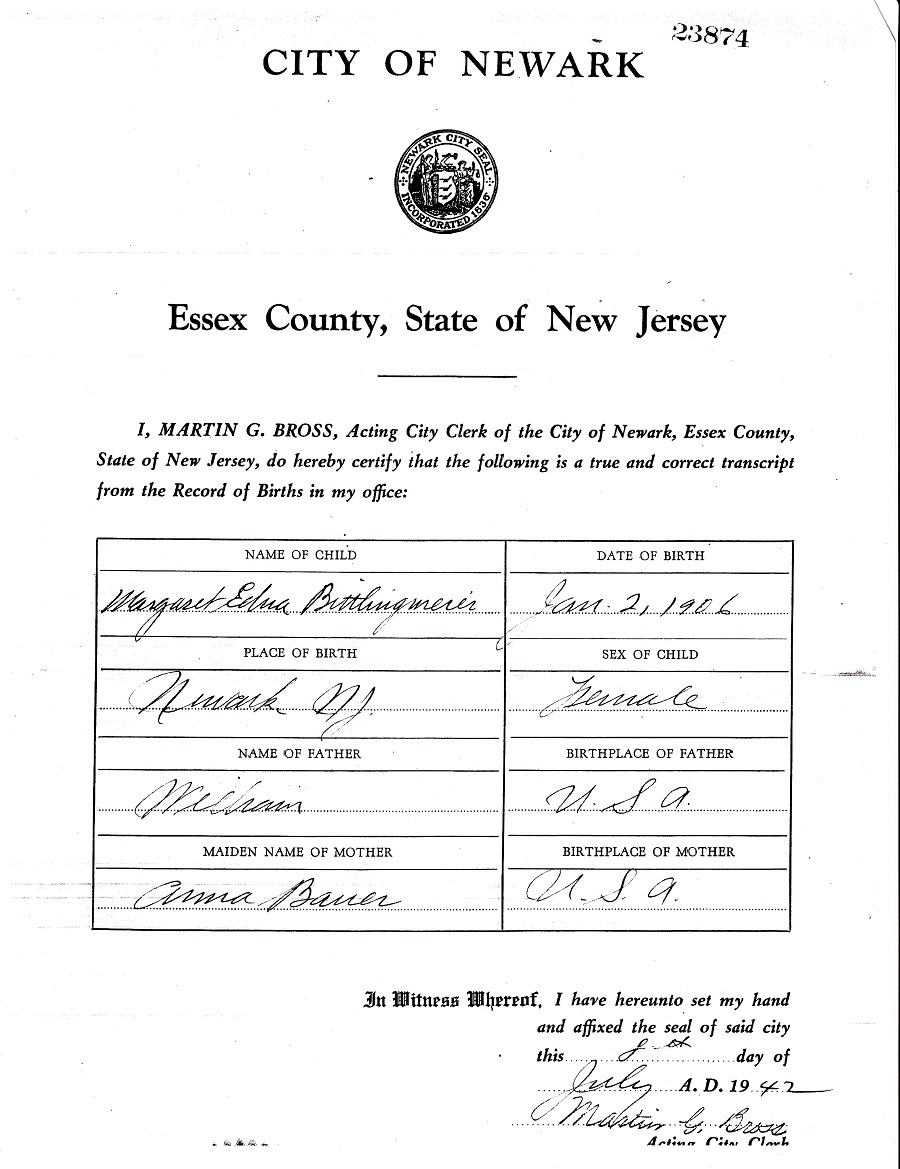 23874
CITY OF NEWARK
NEWARK CITY SEAL
INCORPORATED 1836
Essex County, State of New Jersey
I, MARTIN G. BROSS, Acting City Clerk of the City of Newark, Essex County,
State of New Jersey, do hereby certify that the following is a true and correct transcript
from the Record of Births in my office:
NAME OF CHILD DATE OF BIRTH
Margaret Edna Bittlingmeier Jan. 2, 1906
PLACE OF BIRTH SEX OF CHILD
Newark NJ. Female
NAME OF FATHER BIRTHPLACE OF FATHER
William U. S. A.
MAIDEN NAME OF MOTHER BIRTHPLACE OF MOTHER
Anna Bauer U. S. A.
In Witness Whereof, I have hereunto set my hand
and affixed the seal of said city
this day of
July A. D. 1942
Martin G. Bross
Acting City Clerk